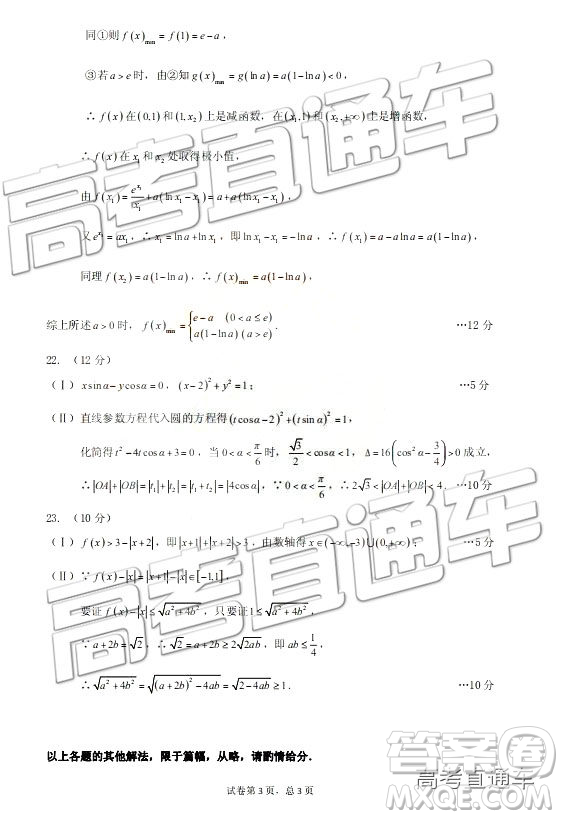 同①则 f(x)min = f(1) = e − a，
③若 a > e 时，由②知 g(x)min = g(ln a) = a(1 − ln a) < 0，
∴ f(x) 在 (0,1) 和 (1,x₂) 上是减函数，在 (x₁,1) 和 (x₂,+∞) 上是增函数，
∴ f(x) 在 x₁ 和 x₂ 处取得极小值，
由 f(x₁) = e^x₁/x₁ + a(ln x₁ − x₁) = a + a(ln x₁ − x₁)，
又 e^x₁ = ax₁，∴ x₁ = ln a + ln x₁，即 ln x₁ − x₁ = −ln a，∴ f(x₁) = a − a ln a = a(1 − ln a)，
同理 f(x₂) = a(1 − ln a)，∴ f(x)min = a(1 − ln a)，
综上所述 a > 0 时，f(x)min = { e − a (0 < a ≤ e) a(1 − ln a) (a > e) ．…12 分
22. （12 分）
（Ⅰ） x sin α − y cos α = 0，(x − 2)² + y² = 1；…5 分
（Ⅱ）直线参数方程代入圆的方程得 (t cos α − 2)² + (t sin α)² = 1，
化简得 t² − 4t cos α + 3 = 0，当 0 < α < π/6 时，√3/2 < cos α < 1，Δ = 16(cos² α − 3/4) > 0 成立，
∴ |OA| + |OB| = |t₁| + |t₂| = |t₁ + t₂| = |4cos α|，∵ 0 < α < π/6，∴ 2√3 < |OA| + |OB| < 4．…10 分
23. （10 分）
（Ⅰ） f(x) > 3 − |x + 2|，即 |x + 1| + |x + 2| > 3，由数轴得 x ∈ (−∞,−3)∪(0,+∞)；…5 分
（Ⅱ）∵ f(x) − |x| = |x + 1| − |x| ∈ [−1,1]，
要证 f(x) − |x| ≤ √(a² + 4b²)，只要证 1 ≤ √(a² + 4b²)，
∵ a + 2b = √2，∴ √2 = a + 2b ≥ 2√(2ab)，即 ab ≤ 1/4，
∴ √(a² + 4b²) = √((a + 2b)² − 4ab) = √(2 − 4ab) ≥ 1．…10 分
以上各题的其他解法，限于篇幅，从略，请酌情给分．
试卷第 3 页，总 3 页
高考直通车
高考直通车
高考直通车
答案圈
高考直通车